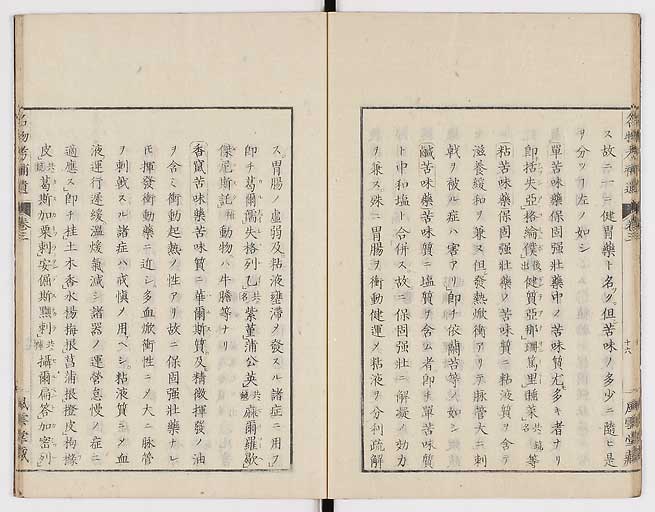 ス故ニ一ニ健胃藥ト名ク但苦味ノ多少ニ隨ヒ是
ヲ分ツヿ左ノ如シ
單苦味藥保固强壯藥中ノ苦味質尤多キ者ナリ
卽括失亞格綸僕健質亞那瑪篤里睡菜等
粘苦味藥保固强壯藥ノ苦味質ニ粘液質ヲ含テ
滋養緩和ヲ兼ヌ但發熱焮衝アリテ脉管大ニ刺
戟ヲ被ル症ハ害アリ卽チ依蘭苔等ノ如シ
鹹苦味藥苦味質ニ塩質ヲ含ム者卽チ單苦味質
ト中和塩ト合併ス故ニ保固强壯ニ解凝ノ効力
ヲ兼ス殊ニ胃腸ヲ衝動健運メ粘液ヲ分利疏解
十六
名物考補遺
卷三
風雲堂藏
ス胃腸ノ虛弱及粘液壅滯メ發スル諸症ニ用フ
卽チ葛爾孺失格列乙共紫菫蒲公英共麻爾羅歇
傑尼斯託動物ハ牛膽等ナリ
香竄苦味藥苦味質ニ華爾斯質及精微揮發ノ油
ヲ含ミ衝動起熱ノ性アリ故ニ保固强壯藥ナレ
𪜈揮發衝動藥ニ近シ多血焮衝性ニメ大ニ脉管
ヲ刺戟スル諸症ハ戒愼メ用ヘシ粘液質ニメ血
液運行遲緩溫煖氣減シ諸器ノ運營怠慢ノ症ニ
適應ス卽チ桂土木香水楊梅根菖蒲根橙皮枸櫞
皮葛斯加栗刺安偭斯點剌攝爾扁答加密列
名物考補遺
卷三
風雲堂藏